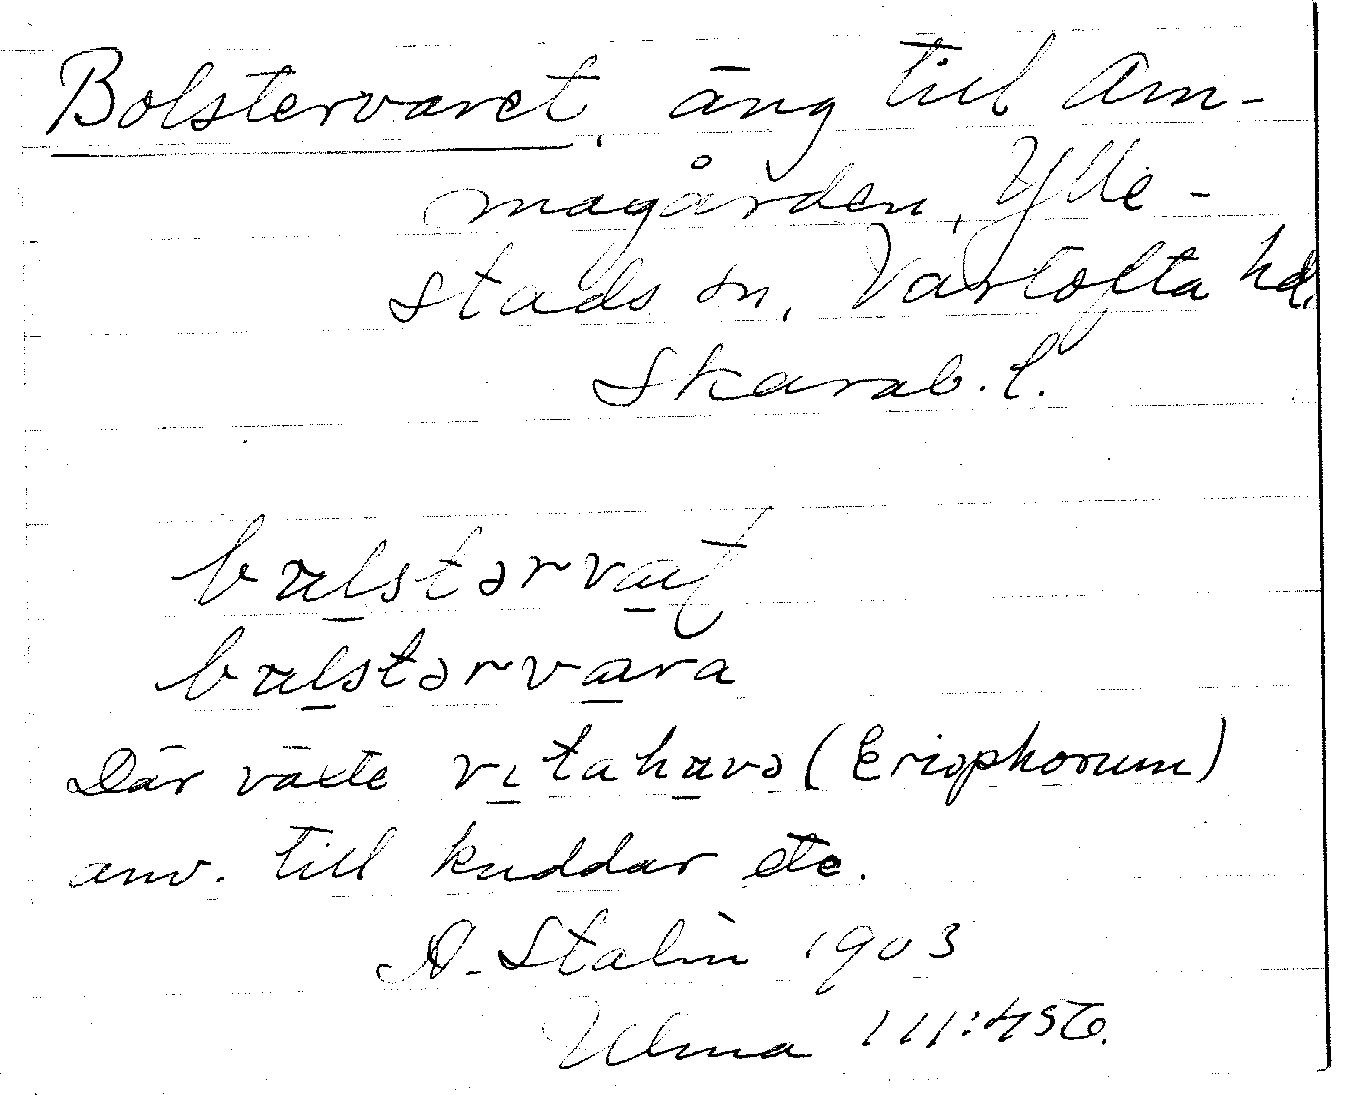 Bolstervaret, äng till Am-
magården, Ylle-
stads sn, Vartofta hd.
Skarab. l.
bulstərvat
bulstərvara
Där växte vitahuvə (Eriophorum)
anv. till kuddar etc.
A. Stalin 1903
Ulma 111:456.